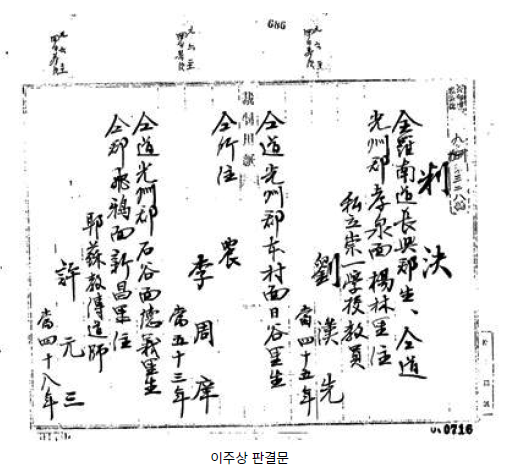 判決
全羅南道長興郡生、仝道
光州郡孝泉面楊林里住
私立崇一學校教員
劉漢先
當四十五年
仝道光州郡本村面日谷里生
仝所住
農
李周庠
當五十三年
仝道光州郡石谷面德義里生
仝郡飛鴉面新昌里住
耶蘇教傳道師
許元三
當四十八年
0716
이주상 판결문